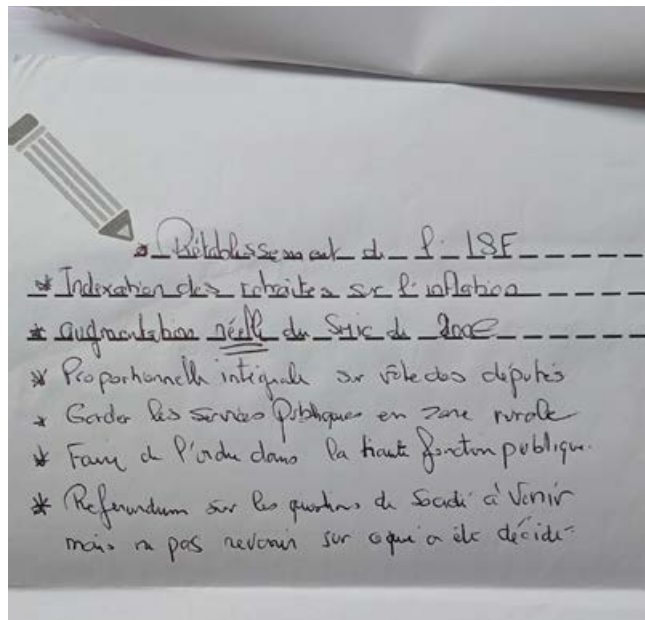 * Rétablissement de l'ISF
* Indexation des retraites sur l'inflation
* augmentation réelle du Smic de 200€
* Proportionnelle intégrale sur vote des députés
* Garder les services Publiques en zone rurale
* Faire de l'ordre dans la haute fonction publique.
* Referendum sur les questions de Société à Venir
mais ne pas revenir sur ce qui a été décidé.